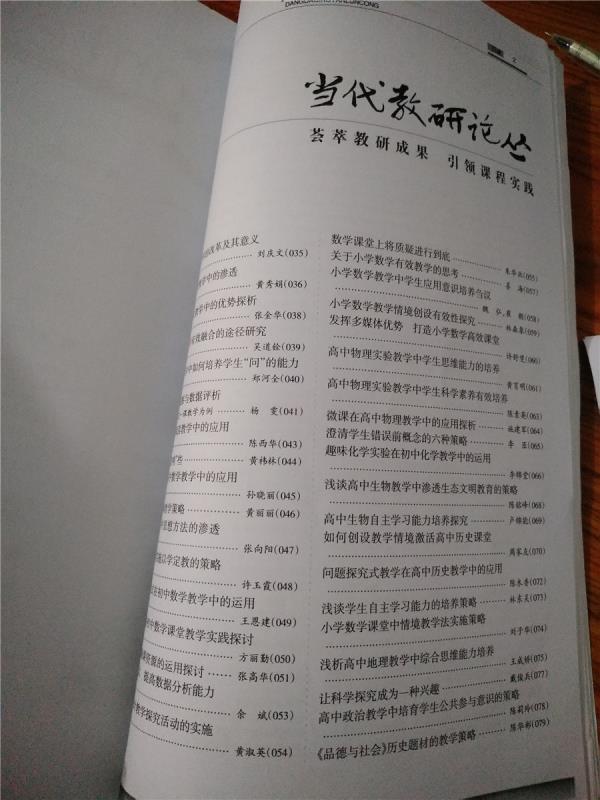 DANGDAIJIAOYANLUNCONG
2
当代教研论丛
荟萃教研成果 引领课程实践
改革及其意义
刘庆文(035)
学中的渗透
黄秀娟(036)
学中的优势探析
张金华(038)
融合的途径研究
吴道铨(039)
中如何培养学生“问”的能力
郑河全(040)
与数据评析
课教学为例 杨 雯(041)
教学中的应用
陈西华(043)
些 黄祎林(044)
数学教学中的应用
孙晓丽(045)
学策略 黄丽丽(046)
思想方法的渗透
张向阳(047)
施以学定教的策略
许玉霞(048)
在初中数学教学中的运用
王恩建(049)
中数学课堂教学实践探讨
方丽勤(050)
资源的运用探讨 张高华(051)
提高数据分析能力
余 斌(053)
教学探究活动的实施
黄淑英(054)
数学课堂上将质疑进行到底
(055)
关于小学数学有效教学的思考 (057)
小学数学教学中学生应用意识培养刍议
(058)
小学数学教学情境创设有效性探究 (059)
发挥多媒体优势 打造小学数学高效课堂
(060)
高中物理实验教学中学生思维能力的培养
黄育明(061)
高中物理实验教学中学生科学素养有效培养
(063)
微课在高中物理教学中的应用探析 施建军(064)
澄清学生错误前概念的六种策略 李 (065)
趣味化学实验在初中化学教学中的运用
李锦堂(066)
浅谈高中生物教学中渗透生态文明教育的策略
陈铭峰(068)
高中生物自主学习能力培养探究 卢锦能(069)
如何创设教学情境激活高中历史课堂
周家友(070)
问题探究式教学在高中历史教学中的应用
陈木香(072)
浅谈学生自主学习能力的培养策略 林东天(073)
小学数学课堂中情境教学法实施策略
刘于华(074)
浅析高中地理教学中综合思维能力培养
王成娇(075)
让科学探究成为一种兴趣 戴俊兵(077)
高中政治教学中培育学生公共参与意识的策略
陈莉玲(078)
《品德与社会》历史题材的教学策略 陈华彬(079)